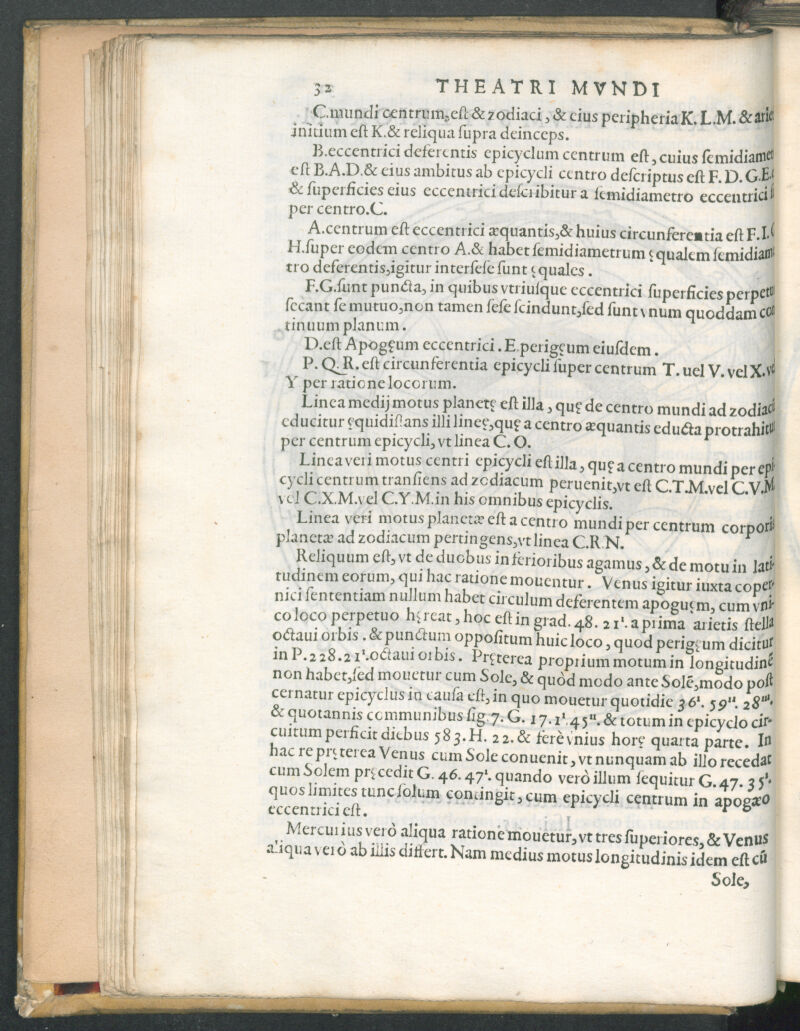 32 THEATRI MVNDI
C.mundi centrum,eſt & zodiaci, & eius peripheria K. L.M. & arie
initium eſt K.& reliqua ſupra deinceps.
B.eccentrici deferentis epicyclum centrum eſt, cuius ſemidiamet
eſt B.A.D.& eius ambitus ab epicycli centro deſcriptus eſt F. D. G.E.
& ſuperficies eius eccentrici deſcribitur a ſemidiametro eccentrici ſ
per centro.C.
A.centrum eſt eccentrici æquantis,& huius circunferentia eſt F. I.
H.ſuper eodem centro A.& habet ſemidiametrum ęqualem ſemidiam
tro deferentis,igitur interſeſe ſunt ęquales.
F.G.ſunt puncta, in quibus vtriuſque eccentrici ſuperficies perpetu
ſecant ſe mutuo,non tamen ſeſe ſcindunt,ſed ſunt vnum quoddam con
tinuum planum.
D.eſt Apogęum eccentrici. E.perigęum eiuſdem.
P. Q. R. eſt circunferentia epicycli ſuper centrum T. uel V. vel X. vel
Y per ratione locorum.
Linea medij motus planetę eſt illa, quę de centro mundi ad zodiacū
educitur ęquidiſtans illi lineę,quę a centro æquantis educta protrahitur
per centrum epicycli, vt linea C. O.
Linea veri motus centri epicycli eſt illa, quę a centro mundi per epi-
cycli centrum tranſiens ad zodiacum peruenit,vt eſt C.T.M.vel C.V.M
vel C.X.M.vel C.Y.M.in his omnibus epicyclis.
Linea veri motus planetæ eſt a centro mundi per centrum corporis
planetæ ad zodiacum pertingens,vt linea C.R N.
Reliquum eſt, vt de duobus inferioribus agamus, & de motu in lati-
tudinem eorum, qui hac ratione mouentur. Venus igitur iuxta coper-
nici ſententiam nullum habet circulum deferentem apogęum, cum vni-
co loco perpetuo hęreat, hoc eſt in grad. 48. 21'. a prima arietis ſtella
octaui orbis. & punctum oppoſitum huic loco, quod perigęum dicitur
in P. 228. 21'.octaui orbis. Pręterea proprium motum in longitudinē
non habet,ſed mouetur cum Sole, & quòd modo ante Solē,modo poſt
cernatur epicyclus in cauſa eſt, in quo mouetur quotidie 36'. 59''. 28'''.
& quotannis communibus ſig.7. G. 17. 1'. 45''. & totum in epicyclo cir-
cuitum perficit diebus 583. H. 22. & ferè vnius horę quarta parte. In
hac re pręterea Venus cum Sole conuenit, vt nunquam ab illo recedat
cum Solem pręcedit G. 46. 47'. quando verò illum ſequitur G. 47. 35'.
quos limites tunc ſolum contingit, cum epicycli centrum in apogæo
eccentrici eſt.
Mercurius verò aliqua ratione mouetur, vt tres ſuperiores, & Venus
aliqua verò ab illis differt. Nam medius motus longitudinis idem eſt cū
Sole,